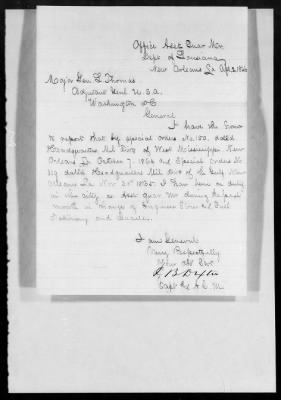 Office Asst Quar Mr
Dept of Louisiana
New Orleans La Apl 2 1866
Major Genl L Thomas
Adjutant Genl U.S.A.
Washington D.C.
General
I have the honor
to report that by special orders No 150 dated
Headquarters Mil Divn of West Mississippi New
Orleans La October 7. 1864 and Special Orders No
113 dated Headquarters Mil Divn of the Gulf New
Orleans La Nov 30" 1865. I have been on duty
in this city as Asst Quar Mr during the past
month in charge of Engineer Stores and Fuel
Stationery and
I am General
Very Respectfully
Your Obt Servt
Capt & A. Q. M.